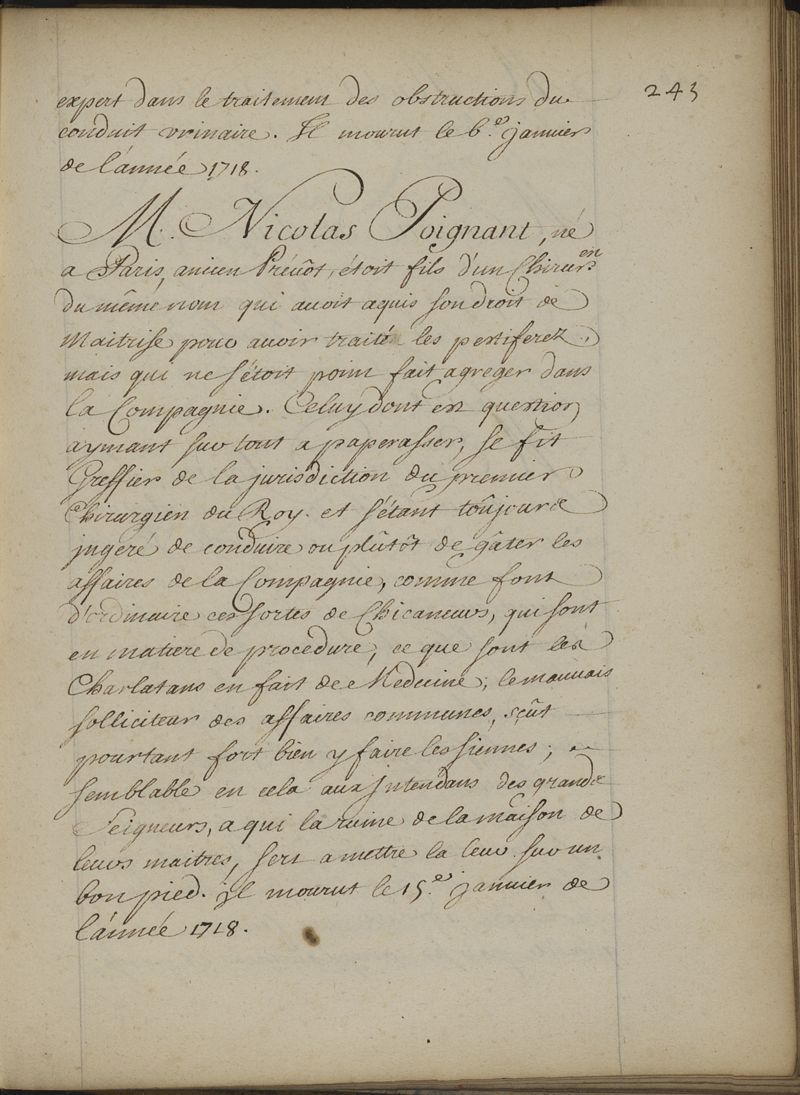 243
expert dans le traitement des obstructions du
conduit vrinaire. Il mourut le 6.e janvier
de l'année 1718.
M. Nicolas Poignant, né
a Paris, ancien Prévôt, étoit fils d'un Chirur.en
du même nom qui avoit aquis son droit de
Maitrise pour avoir traité les pestiferez,
mais qui ne s'étoit point fait agreger dans
la Compagnie. Celuy dont est question
aymant sur tout a paperasser, se fit
Greffier de la jurisdiction du premier
Chirurgien du Roy. et s'étant toûjours
jngeré de conduire ou plûtôt de gâter les
affaires de la Compagnie, comme font
d'ordinaire ces sortes de Chicaneurs, qui sont
en matiere de procedure, ce que sont les
Charlatans en fait de Medecine; le mauvais
solliciteur des affaires communes, sçût
pourtant fort bien y faire les siennes;
semblable en cela aux Jntendans des grands
Seigneurs, a qui la ruine de la maison de
leurs maitres, sert a mettre la leur sur un
bon pied. Jl mourut le 15.e janvier de
l'année 1718.